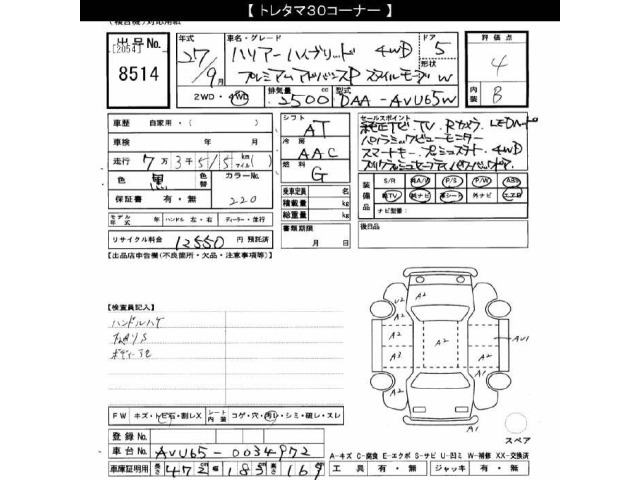 【 トレタマ30コーナー 】
(検査機)対応用紙
出品No.
[2054]
8514
年式
27/9月
車名・グレード
ハリアーハイブリッド 4WD
プレミアムアドバンスP スタイルモーヴ
ドア
5
形状
W
2WD・4WD
排気量
2500 cc
型式
DAA-AVU65W
評価点
4
内装
B
車歴 自家用・( )
車検 年 月
走行 7万3千515 km マイル ( )
色 黒 色替
カラーNo.
220
保証書 有・無
モデル年式 年 ハンドル 左・右 ディーラー・並行
リサイクル料金 12550 円 預託済
シフト
AT
冷房
AAC
燃料
G
乗車定員 名
積載量 kg
総重量 kg
書類期限
月 日
セールスポイント
純正ナビ・TV・Rカメラ LEDヘッド
パノラミックビューモニター
スマートキー・プッシュスタート 4WD
装備品
S/R A/W P/S P/W ABS
純TV 純ナビ 革シート 外ナビ エアB
ナビ型番:
後日品
【出品店申告欄(不良箇所・欠品・注意事項等)】
【検査員記入】
ハンドルハゲ
F内リS
ボディ 小E
U2 A2
A1
A2
A3
A2
A2
A2
AU1
A2
A2
A1
スペア
FW キズ・トビ石・割レX シート内装 コゲ・穴・汚レ・シミ・破レ・スレ
登録No.
車台No. AVU65-0034972
車庫証明用 長さ 472 cm 幅 183 cm 高さ 169 cm
A-キズ C-腐食 E-エクボ S-サビ U-凹ミ W-補修 XX-交換済
工具 有・無 ジャッキ 有・無